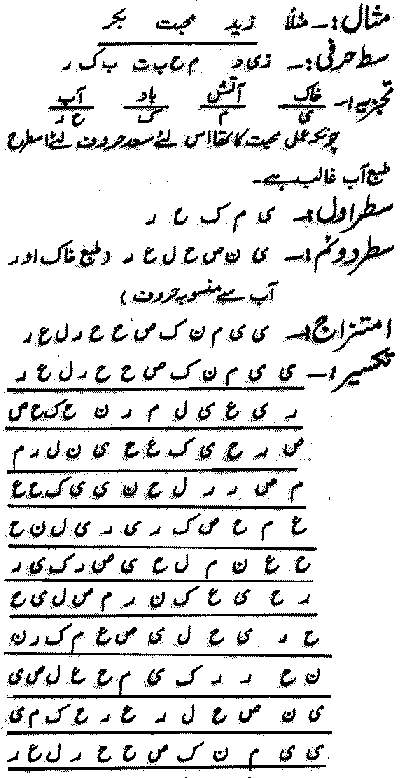 مثال:۔ مثلاً زید محبت بکر
سطر حرفی:۔ ز ی د م ح ب ت ب ک ر
تجزیہ:۔ خاک آتش باد آب
ی م ک ح ر
چونکہ عمل محبت کا تھا اس لئے سعد حروف لئے اسطرح
طبع آب غالب ہے۔
سطر اول:۔ ی م ک ح ر
سطر دوئم:۔ ی ن ص ح ل ع ر (طبع خاک اور
آب سے منسوبہ حروف)
امتزاج:۔ ی ی م ن ک ص ح ح ر ل ع ر
تکسیر:۔ ی ی م ن ک ص ح ح ر ل ع ر
ر ی ع ی ل م ر ن ح ک ح ص
ص ر ح ی ک ع ح ی ن ل ر م
م ص ر ر ل ح ن ی ی ک ح ع
ع م ح ص ک ر ی ر ی ل ن ح
ح ع ن م ل ح ی ص ر ک ی ر
ر ح ی ع ک ن ر م ص ل ی ح
ح ر ی ح ل ی ص ع م ک ر ن
ن ح ر ر ک ی م ح ع ل ص ی
ی ن ص ح ل ر ع ر ح ک م ی
ی ی م ن ک ص ح ح ر ل ع ر